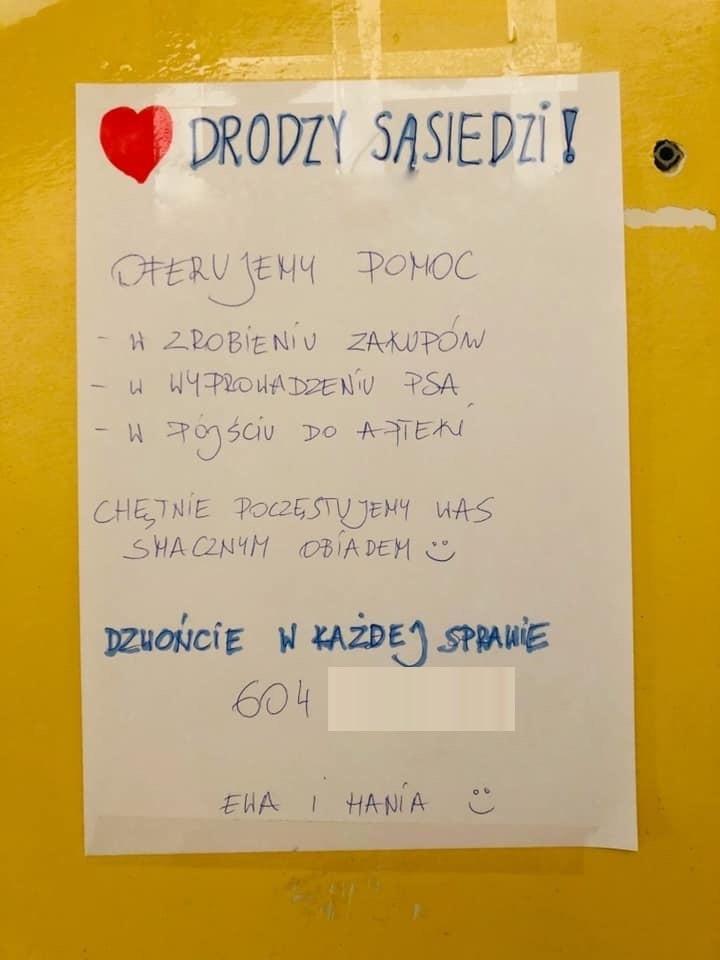 DRODZY SĄSIEDZI!
OFERUJEMY POMOC
- W ZROBIENIU ZAKUPÓW
- W WYPROWADZENIU PSA
- W PÓJŚCIU DO APTEKI
CHĘTNIE POCZĘSTUJEMY WAS
SMACZNYM OBIADEM
DZWOŃCIE W KAŻDEJ SPRAWIE
604
EWA I HANIA